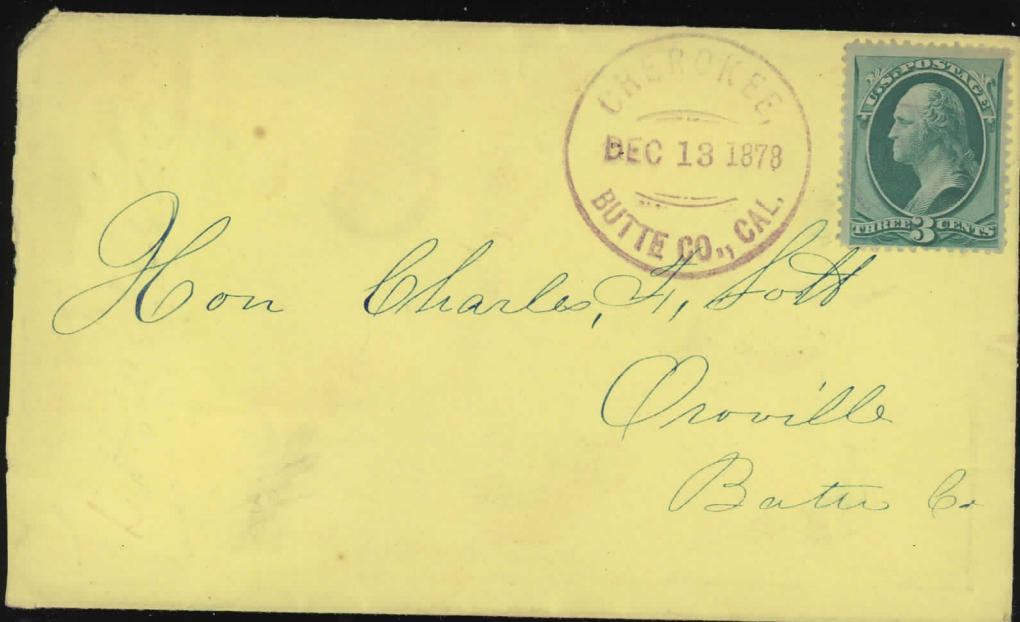 CHEROKEE,
DEC 13 1878
BUTTE CO., CAL.
U.S. POSTAGE
THREE 3 CENTS
Hon Charles, F, Lott
Oroville
Butte Co